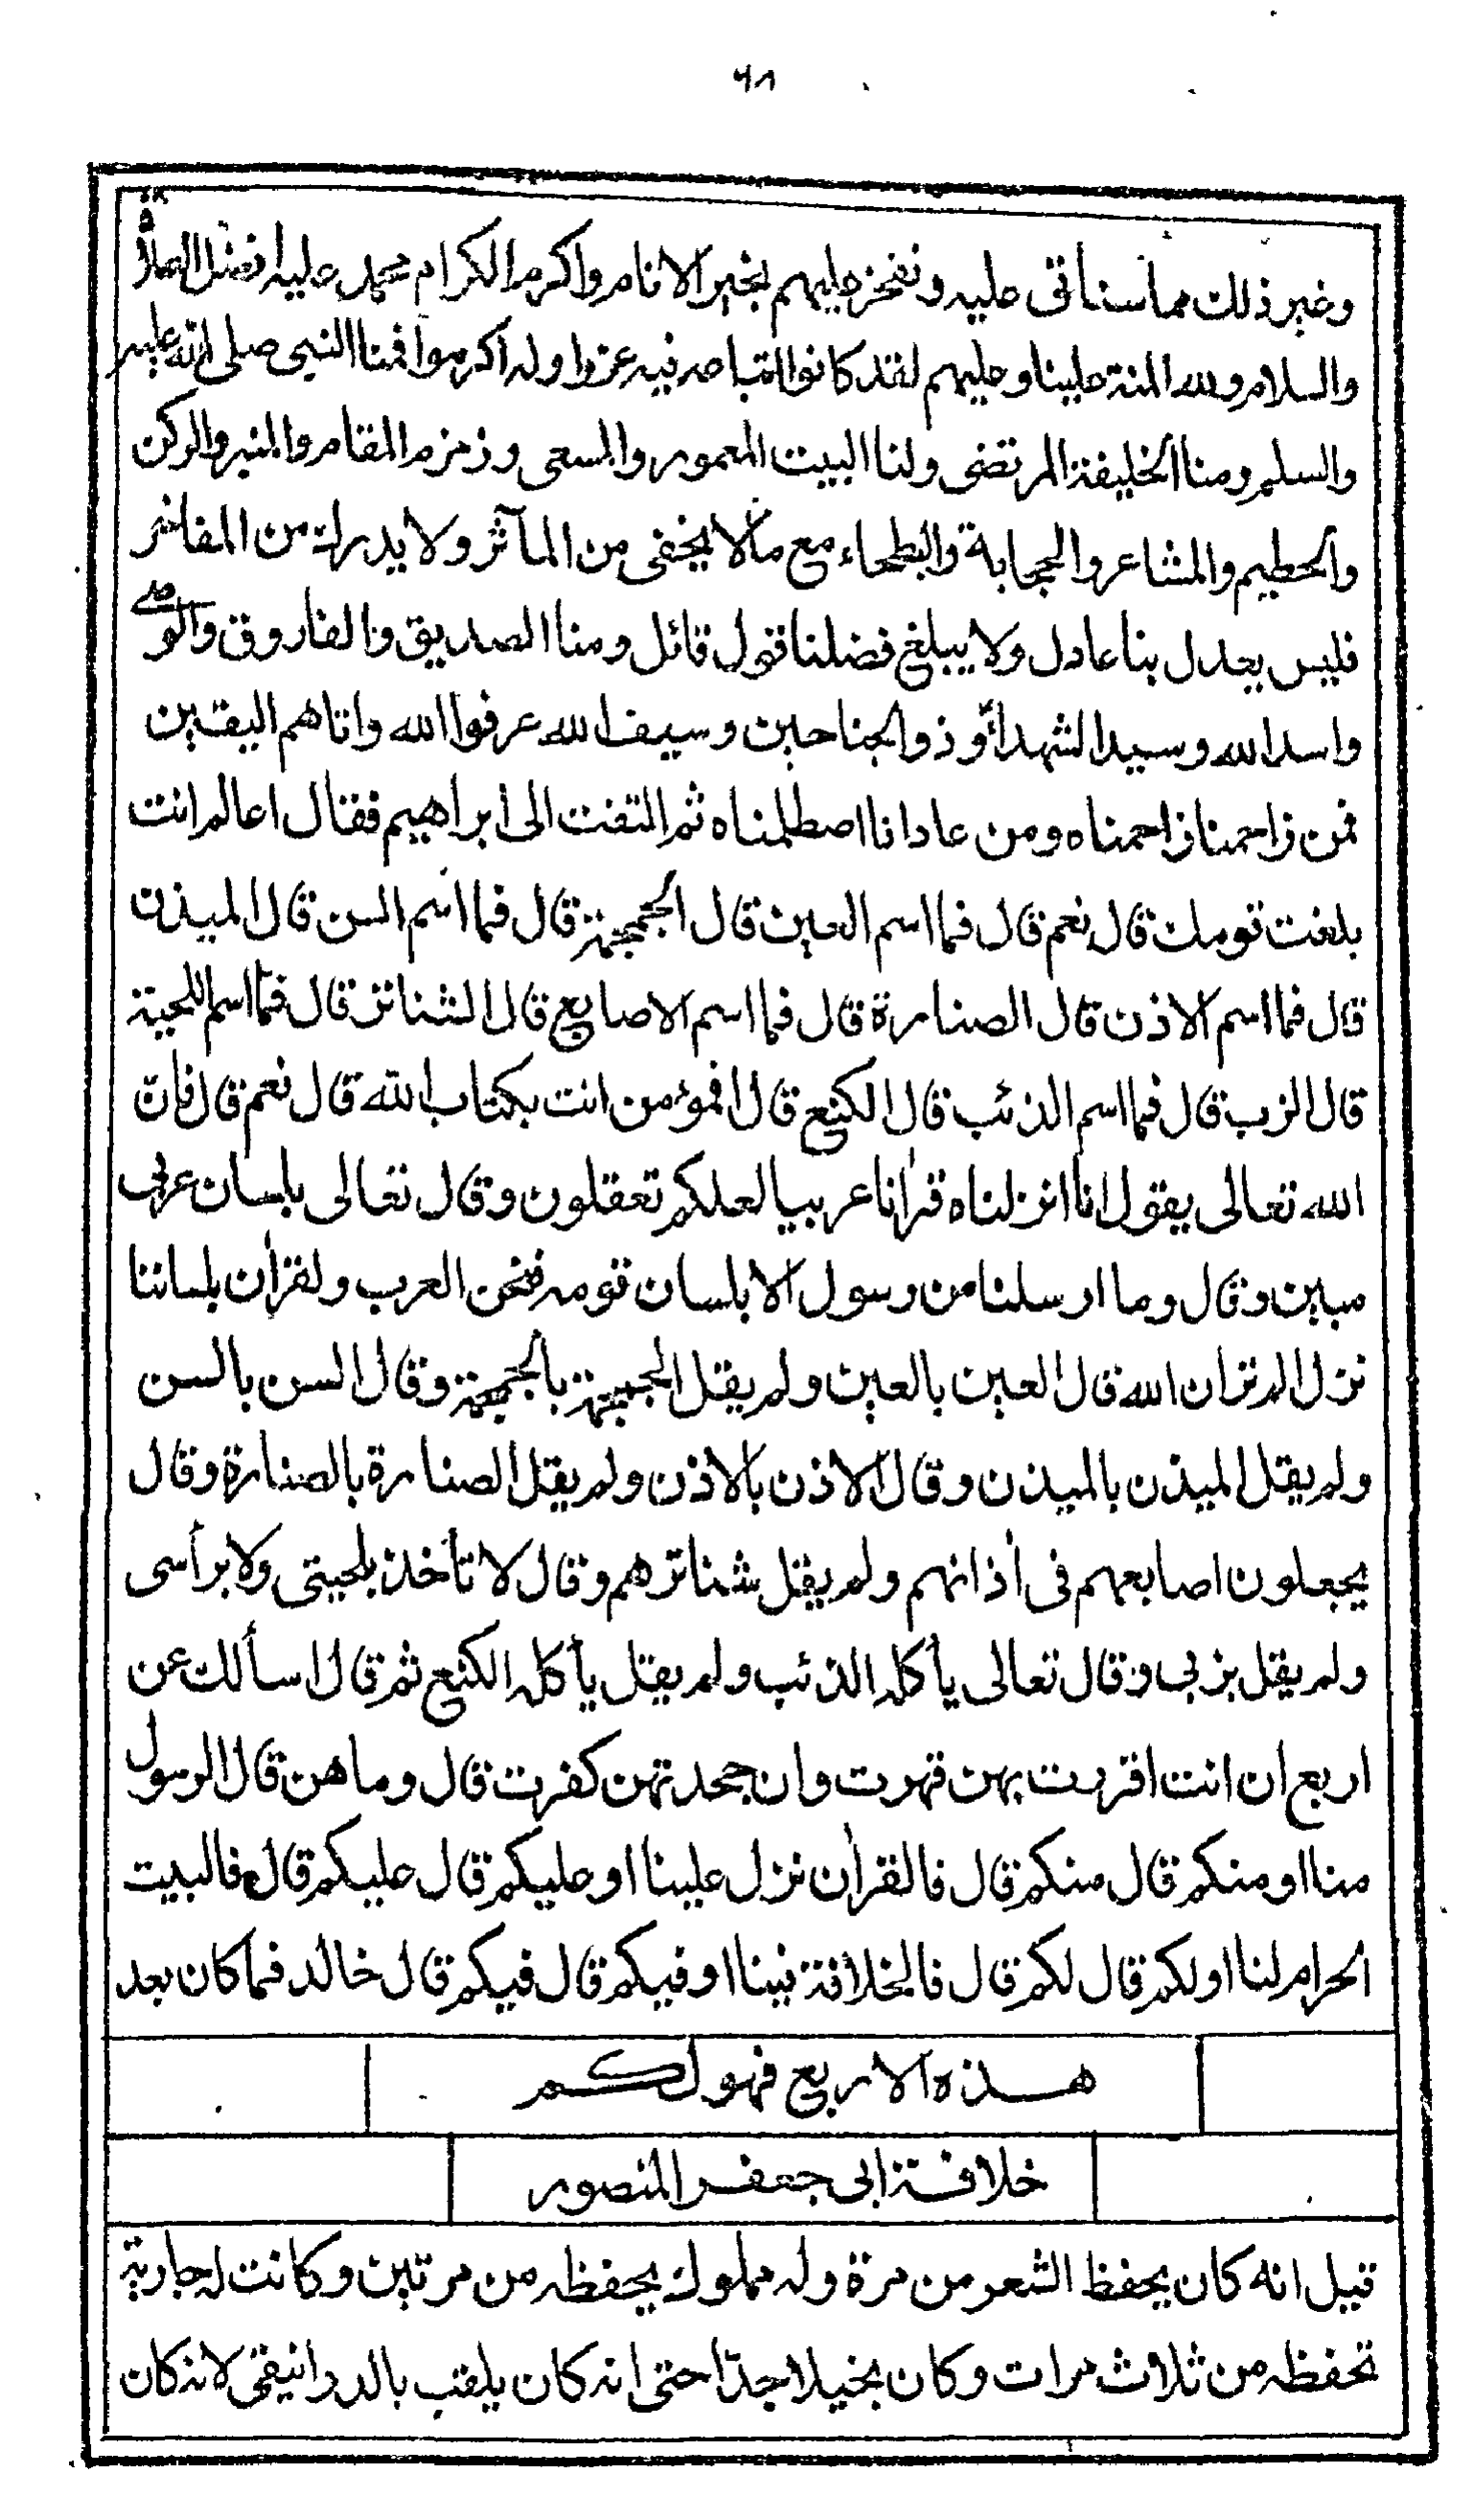 ٦١
وغير ذلك مما سنأتى عليه ونفخر عليهم بخير الانام واكرم الكرام محمد عليه افضل الصلاة
والسلام ولله المنة علينا وعليهم لقد كانوا اتباعه فبه عزوا وله اكرموا فمنا النبي صلى الله عليه
والسلم ومنا الخليفة المرتضى ولنا البيت المعمور والمسعى وزمزم المقام والمنبر والركن
والحطيم والمشاعر والحجابة والبطحاء مع مالا يخفى من المآثر ولا يدرك من المفاخر
فليس يعدل بنا عادل ولا يبلغ فضلنا قول قائل ومنا الصديق والفاروق والوصي
واسد الله وسيد الشهدأ وذو الجناحين وسيف الله عرفوا الله واتاهم اليقين
فمن زاحمنا زاحمناه ومن عادانا اصطلمناه ثم التفت الى ابراهيم فقال اعالم انت
بلغت قومك قال نعم قال فما اسم العين قال الجحمة قال فما اسم السن قال الميذن
قال فما اسم الاذن قال الصنارة قال فما اسم الاصابع قال الشناتر قال فما اسم اللحية
قال الزب قال فما اسم الذئب قال الكنع قال افمؤمن انت بكتاب الله قال نعم قال فان
الله تعالى يقول انا انزلناه قرانا عربيا لعلكم تعقلون وقال تعالى بلسان عربى
مبين وقال وما ارسلنا من رسول الا بلسان قومه فنحن العرب ولقران بلساننا
نزل الم تر ان الله قال العين بالعين ولم يقل الجحمة بالجحمة وقال السن بالسن
ولم يقل الميذن بالميذن وقال الاذن بالاذن ولم يقل الصنارة بالصنارة وقال
يجعلون اصابعهم فى أذانهم ولم يقل شناترهم وقال لا تأخذ بلحيتى ولا برأسى
ولم يقل بزبى وقال تعالى يأكله الذئب ولم يقل يأكله الكنع ثم قال اسألك عن
اربع ان انت اقررت بهن قهرت وان جحدتهن كفرت قال وما هن قال الرسول
منا او منكم قال منكم قال فالقران نزل علينا او عليكم قال عليكم قال فالبيت
الحرام لنا او لكم قال لكم قال فالخلافة فينا او فيكم قال فيكم قال خالد فما كان بعد
هذه الاربع فهو لكم
خلافة ابى جعفر المنصور
قيل انه كان يحفظ الشعر من مرة وله مملوك يحفظه من مرتين وكانت له جارية
تحفظه من ثلاث مرات وكان بخيلا جدّا حتى انه كان يلقب بالدوانيقى لانه كان